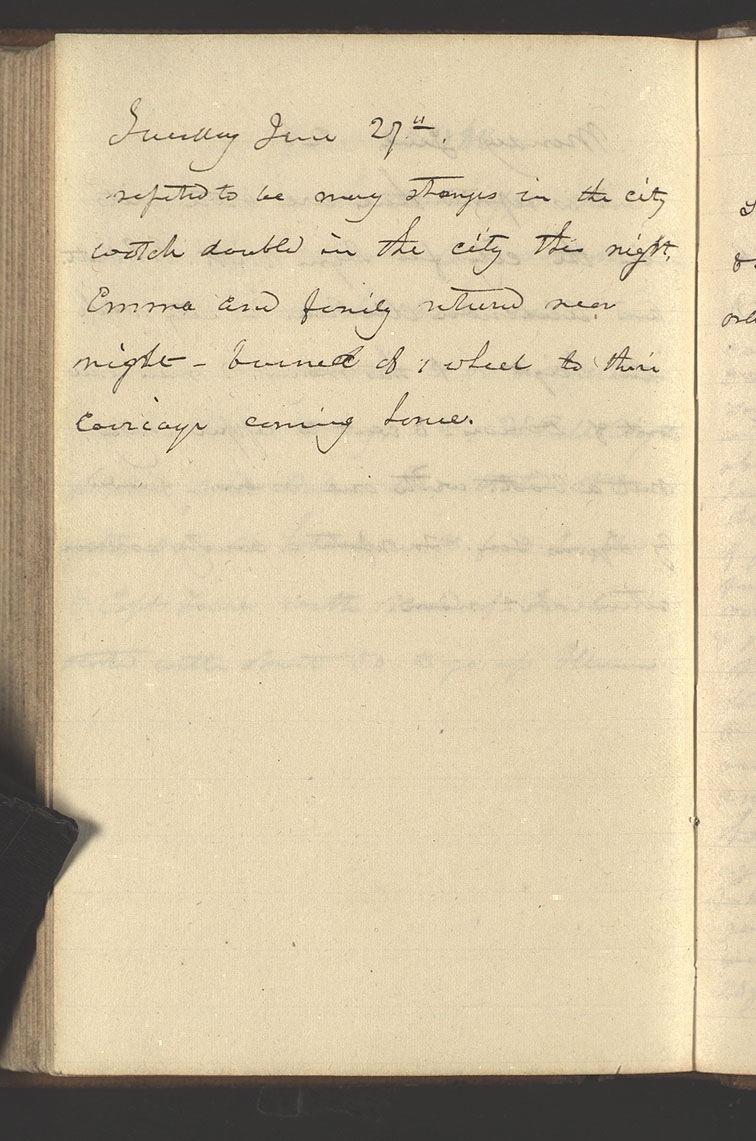 Tuesday June 27th.
reported to be many strangers in the city
watch doubled in the city this night.
Emma and family returned near
night - burned of 1 wheel to their
carriage coming home.